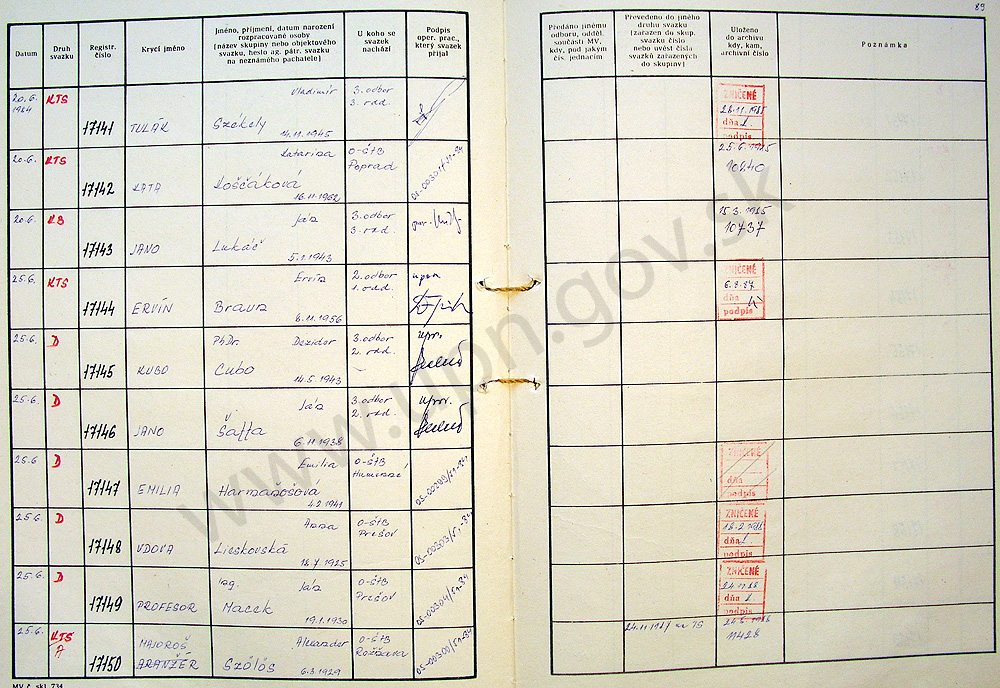 89
Datum
Druh svazku
Registr. číslo
Krycí jméno
Jméno, příjmení, datum narození
rozpracované osoby
(název skupiny nebo objektového
svazku, heslo ag. pátr. svazku
na neznámého pachatele)
U koho se
svazek
nachází
Podpis
oper. prac.,
který svazek
přijal
Předáno jinému
odboru, odděl.
součásti MV,
kdy, pod jakým
čís. jednacím
Převedeno do jiného
druhu svazku
(zařazen do skup.
svazku číslo
nebo uvést čísla
svazků zařazených
do skupiny)
Uloženo
do archivu
kdy, kam,
archivní číslo
Poznámka
20.6. 1984 KTS 17141 TULÁK Székely Vladimír 14.11.1945 3. odbor 3. odd. ZNIČENÉ dňa podpis
20.6. KTS 17142 KATA Koščáková Katarína 16.11.1962 O-ŠTB Poprad 25.6.1985 10840
20.6. KB 17143 JANO Lukáč Ján 5.1.1943 3. odbor 3. odd. 15.3.1985 10737
25.6. KTS 17144 ERVÍN Braun Ervín 8.11.1956 2. odbor 1. odd. ZNIČENÉ 6.8.87 dňa podpis
25.6. D 17145 KUBO PhDr. Cubo Dezider 14.5.1943 3. odbor 2. odd.
25.6. D 17146 JANO Šaffa Ján 6.11.1938 3. odbor 2. odd.
25.6 D 17147 EMILIA Harmanošová Emília 4.2.1941 O-ŠTB Humenné ZNIČENÉ dňa podpis
25.6. D 17148 VDOVA Lieskovská Anna 18.7.1925 O-ŠTB Prešov 05-00303/51-84 ZNIČENÉ dňa podpis
25.6. D 17149 PROFESOR Ing. Macek Ján 19.1.1930 O-ŠTB Prešov 05-00304/51-84 ZNIČENÉ dňa podpis
25.6. KTS A 17150 MAJOROŠ ARANŽÉR Szölös Alexander 6.3.1929 O-ŠTB Rožňava 05-00300/51-84 11428
MV č. skl. 734
www.upn.gov.sk